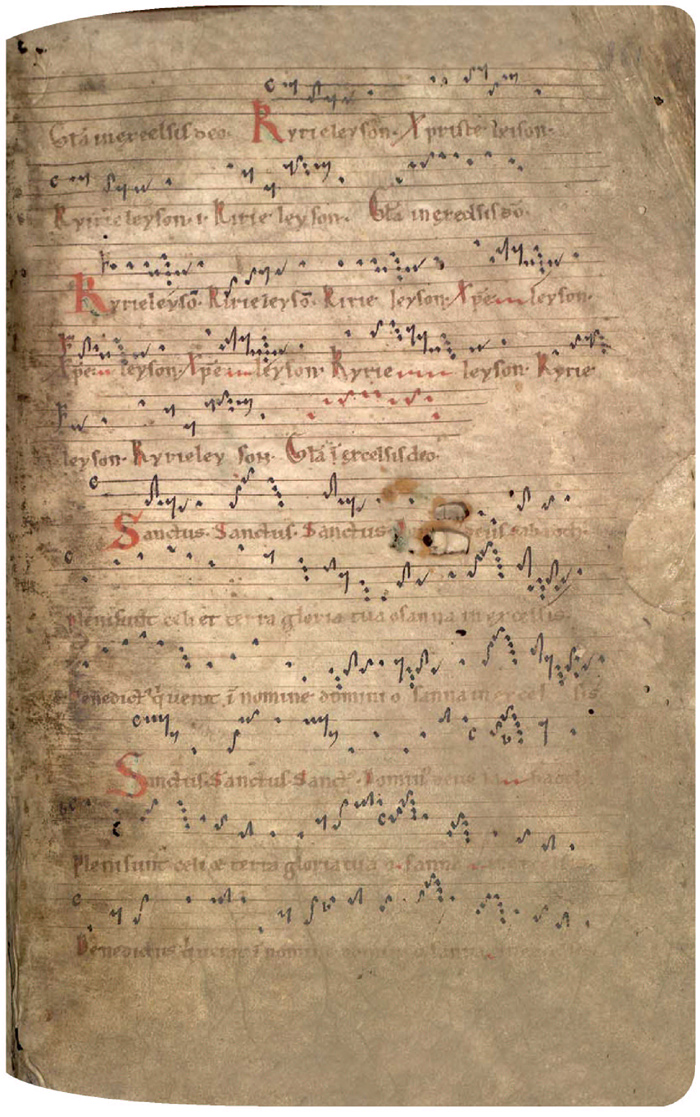 Gľa inexcelsis deo. Kyrieleyson. Xpriste leison.
Kyrieleyson. Kirie leyson. Gľa inexcelsis dō.
Kyrieleysō. Kirieleysō. Kirie leyson. Xpē leyson.
Xpē leyson. Xpē leyson. Kyrie leyson. Kyrie
leyson. Kyrieley son. Gľa ī excelsis deo.
Sanctus. Sanctus. Sanctus sabaoth.
Pleni sunt celi et terra gloria tua osanna in excelsis.
Benedictꝰ q̇ uenit ī nomine domini o sanna in excel sis
Sanctus. Sanctus. Sanctꝰ. Dominꝰ deus
Pleni sunt celi et terra gloria tua o sanna
Benedictus q̇ uenit ī nomine domini osanna